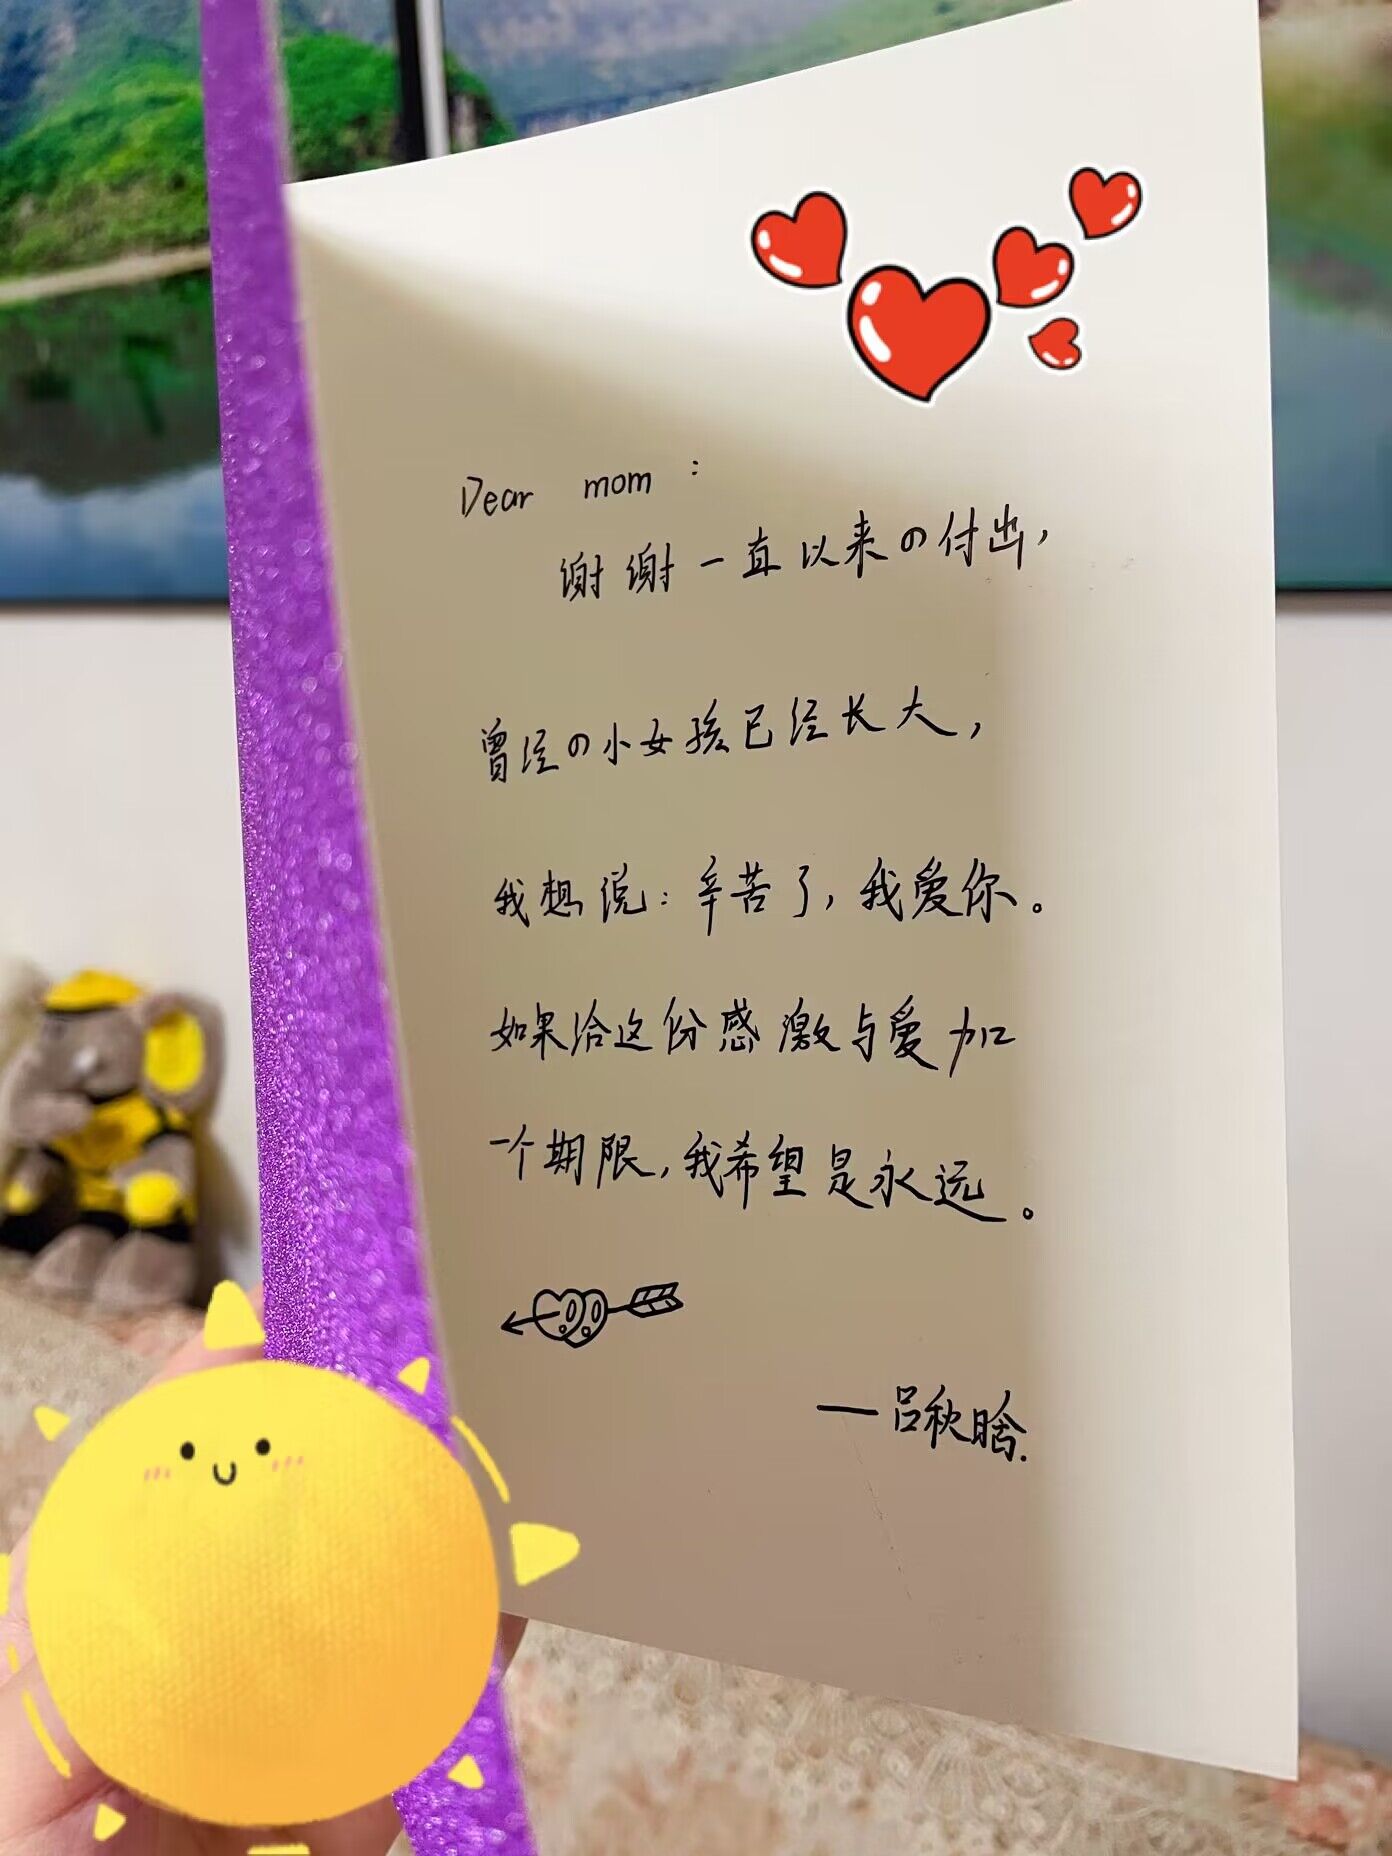 Dear mom：
谢谢一直以来の付出，
曾经の小女孩已经长大，
我想说：辛苦了，我爱你。
如果给这份感激与爱加
一个期限，我希望是永远。
—吕秋晗.